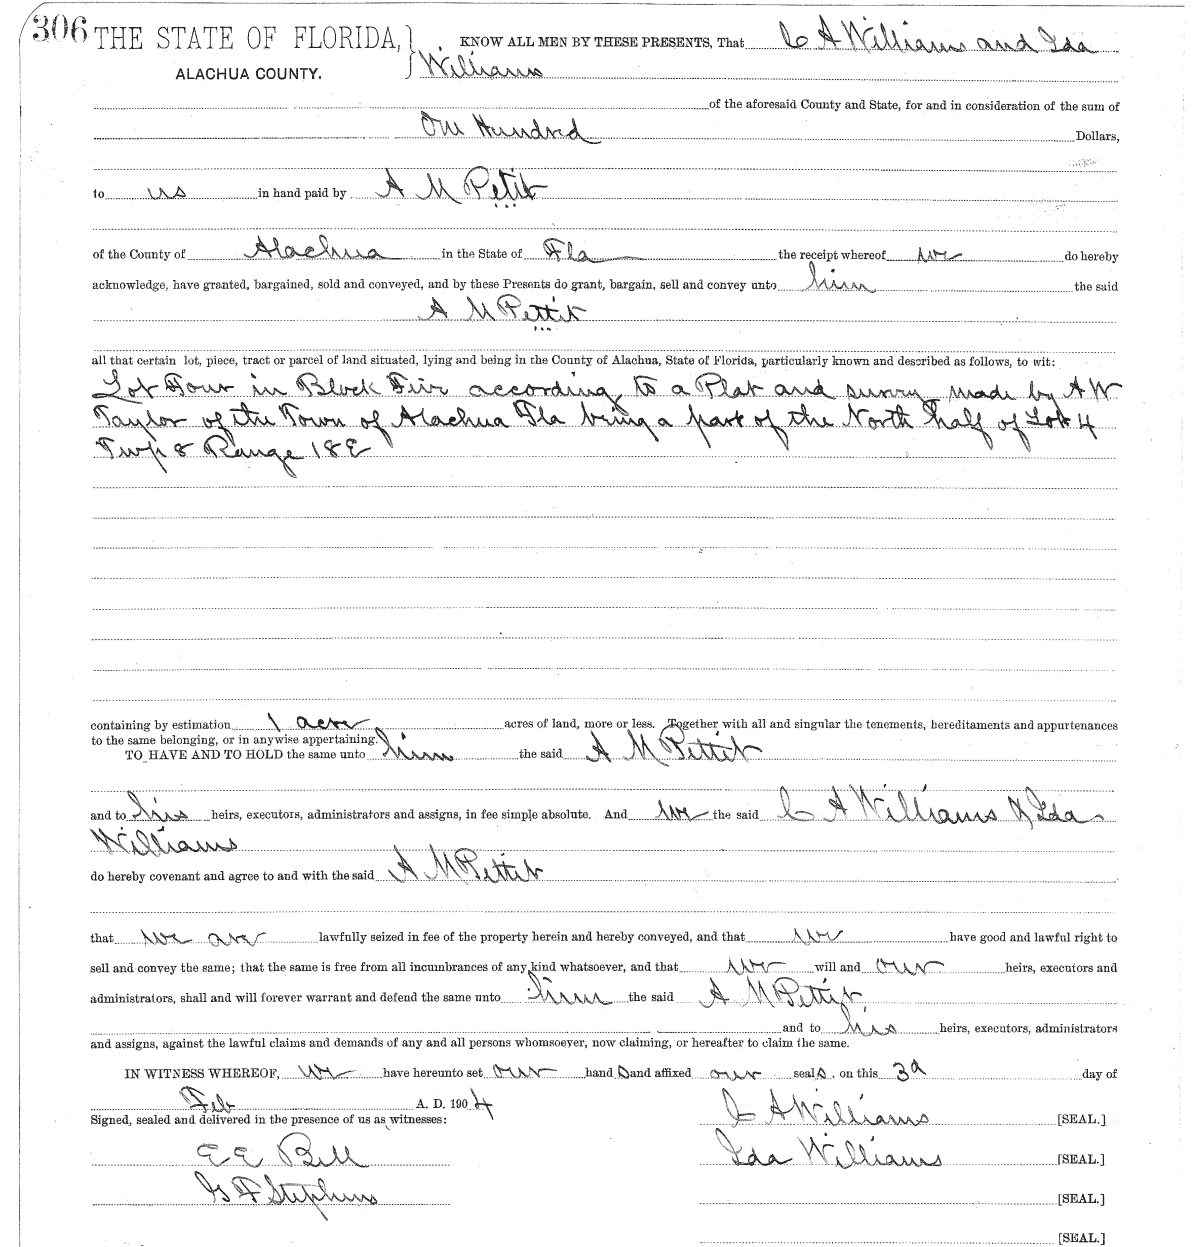 306 THE STATE OF FLORIDA, } KNOW ALL MEN BY THESE PRESENTS, That C A Williams and Ida
ALACHUA COUNTY. Williams
of the aforesaid County and State, for and in consideration of the sum of
One Hundred Dollars,
to us in hand paid by A M Petit
of the County of Alachua in the State of Fla the receipt whereof we do hereby
acknowledge, have granted, bargained, sold and conveyed, and by these Presents do grant, bargain, sell and convey unto him the said
A M Pettit
all that certain lot, piece, tract or parcel of land situated, lying and being in the County of Alachua, State of Florida, particularly known and described as follows, to wit:
Lot Four in Block Five according to a Plat and survey made by A W
Taylor of the Town of Alachua Fla being a part of the North half of Lot 4
Twp 8 Range 18E
containing by estimation 1 acre acres of land, more or less. Together with all and singular the tenements, hereditaments and appurtenances
to the same belonging, or in anywise appertaining.
TO HAVE AND TO HOLD the same unto him the said A M Pettit
and to his heirs, executors, administrators and assigns, in fee simple absolute. And we the said C A Williams & Ida
Williams
do hereby covenant and agree to and with the said A M Pettit
that we are lawfully seized in fee of the property herein and hereby conveyed, and that we have good and lawful right to
sell and convey the same; that the same is free from all incumbrances of any kind whatsoever, and that we will and our heirs, executors and
administrators, shall and will forever warrant and defend the same unto him the said A M Pettit
and to his heirs, executors, administrators
and assigns, against the lawful claims and demands of any and all persons whomsoever, now claiming, or hereafter to claim the same.
IN WITNESS WHEREOF, we have hereunto set our hands and affixed our seals. on this 3d day of
Feb A. D. 1904
Signed, sealed and delivered in the presence of us as witnesses: C A Williams [SEAL.]
E E Bell Ida Williams [SEAL.]
G F Stephens [SEAL.]
[SEAL.]